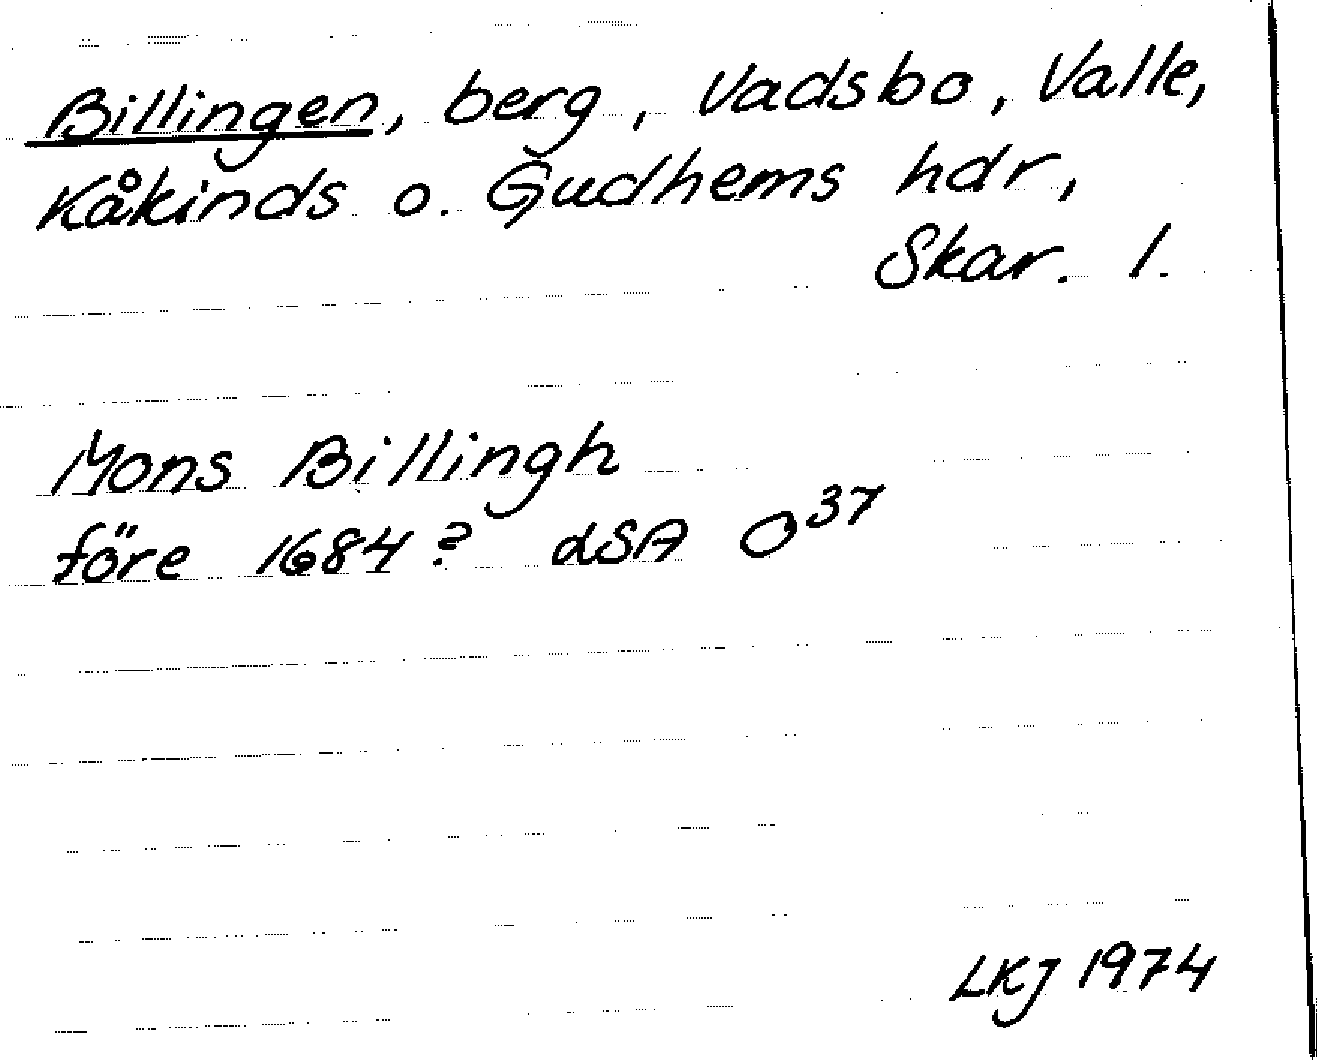 Billingen, berg, Vadsbo, Valle,
Kåkinds o. Gudhems hdr,
Skar. l.
Mons Billingh
före 1684? dSA O³⁷
LKJ 1974